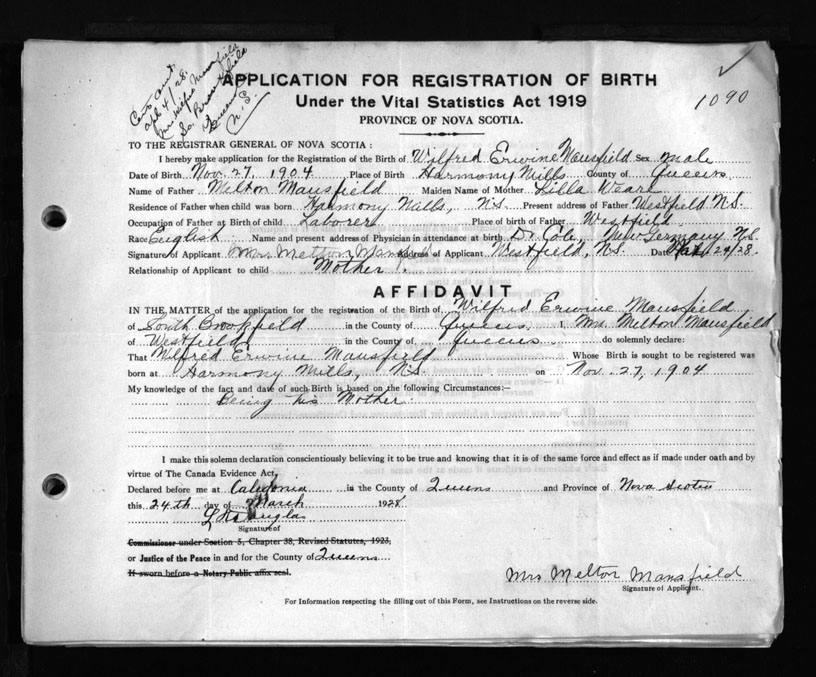 Cert. sent
Apl 4/28.
Mrs Wilfred Mansfield
So. Brookfield
Queens
N.S.
1090
APPLICATION FOR REGISTRATION OF BIRTH
Under the Vital Statistics Act 1919
PROVINCE OF NOVA SCOTIA.
TO THE REGISTRAR GENERAL OF NOVA SCOTIA :
I hereby make application for the Registration of the Birth of Wilfred Erwine Mansfield Sex male
Date of Birth Nov. 27, 1904 Place of Birth Harmony Mills County of Queens
Name of Father Melton Mansfield Maiden Name of Mother Lilla Weare
Residence of Father when child was born Harmony Mills, N.S. Present address of Father Westfield N.S.
Occupation of Father at Birth of child Laborer Place of birth of Father Westfield
Race English Name and present address of Physician in attendance at birth Dr Cole, New Germany N.S.
Signature of Applicant Mrs Melton Mansfield Address of Applicant Westfield, N.S. Date 24/28.
Relationship of Applicant to child Mother
AFFIDAVIT
IN THE MATTER of the application for the registration of the Birth of Wilfred Erwine Mansfield
of South Brookfield in the County of Queens I, Mrs Melton Mansfield
of Westfield in the County of Queens do solemnly declare:
That Wilfred Erwine Mansfield Whose Birth is sought to be registered was
born at Harmony Mills, N.S. on Nov. 27, 1904
My knowledge of the fact and date of such Birth is based on the following Circumstances:—
Being his Mother.
I make this solemn declaration conscientiously believing it to be true and knowing that it is of the same force and effect as if made under oath and by
virtue of The Canada Evidence Act.
Declared before me at Caledonia in the County of Queens and Province of Nova Scotia
this 24th day of March 1928
Douglas
Signature of
Commissioner under Section 5, Chapter 38, Revised Statutes, 1923,
or Justice of the Peace in and for the County of Queens
If sworn before a Notary Public affix seal.
Mrs Melton Mansfield
Signature of Applicant.
For Information respecting the filling out of this Form, see Instructions on the reverse side.